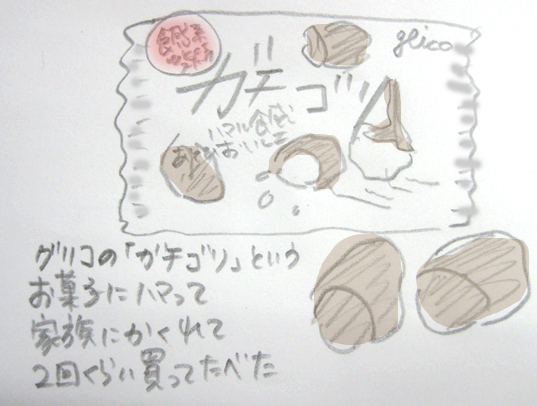 食感系
glico
ガチゴリ
ハマル食感
おいしさ
グリコの「ガチゴリ」という
お菓子にハマって
家族にかくれて
2回くらい買ってたべた